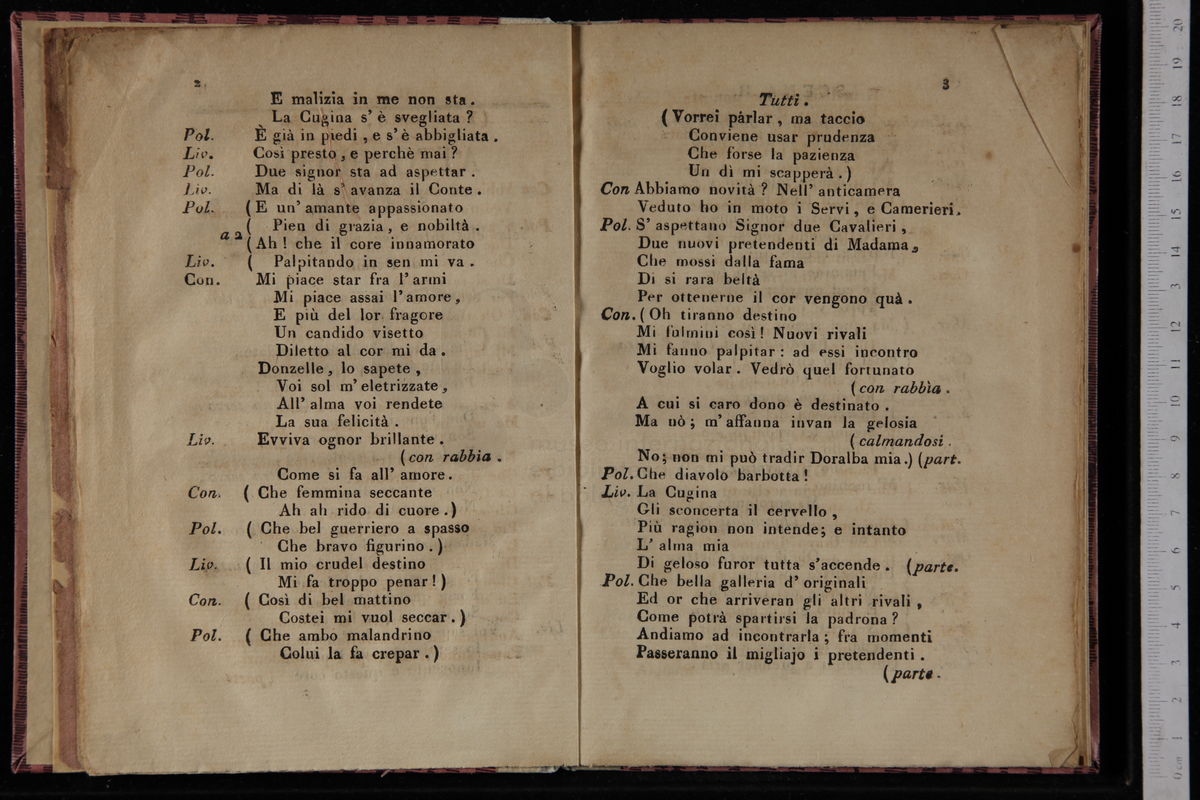 2
E malizia in me non sta.
La Cugina s' è svegliata?
Pol. È già in piedi, e s' è abbigliata.
Liv. Così presto, e perchè mai?
Pol. Due signor sta ad aspettar.
Liv. Ma di là s' avanza il Conte.
Pol. (E un' amante appassionato
( Pien di grazia, e nobiltà.
a 2
(Ah! che il core innamorato
Liv. ( Palpitando in sen mi va.
Con. Mi piace star fra l' armi
Mi piace assai l' amore,
E più del lor fragore
Un candido visetto
Diletto al cor mi da.
Donzelle, lo sapete,
Voi sol m' eletrizzate,
All' alma voi rendete
La sua felicità.
Liv. Evviva ognor brillante.
(con rabbia.
Come si fa all' amore.
Con. ( Che femmina seccante
Ah ah rido di cuore.)
Pol. ( Che bel guerriero a spasso
Che bravo figurino.)
Liv. ( Il mio crudel destino
Mi fa troppo penar!)
Con. ( Così di bel mattino
Costei mi vuol seccar.)
Pol. ( Che ambo malandrino
Colui la fa crepar.)
3
Tutti.
(Vorrei parlar, ma taccio
Conviene usar prudenza
Che forse la pazienza
Un dì mi scapperà.)
Con Abbiamo novità? Nell' anticamera
Veduto ho in moto i Servi, e Camerieri.
Pol. S' aspettano Signor due Cavalieri,
Due nuovi pretendenti di Madama,
Che mossi dalla fama
Di si rara beltà
Per ottenerne il cor vengono quà.
Con. (Oh tiranno destino
Mi fulmini così! Nuovi rivali
Mi fanno palpitar: ad essi incontro
Voglio volar. Vedrò quel fortunato
(con rabbia.
A cui si caro dono è destinato.
Ma nò; m' affanna invan la gelosia
(calmandosi.
No; non mi può tradir Doralba mia.) (part.
Pol. Che diavolo barbotta!
Liv. La Cugina
Gli sconcerta il cervello,
Più ragion non intende; e intanto
L' alma mia
Di geloso furor tutta s'accende. (parte.
Pol. Che bella galleria d' originali
Ed or che arriveran gli altri rivali,
Come potrà spartirsi la padrona?
Andiamo ad incontrarla; fra momenti
Passeranno il migliajo i pretendenti.
(parte.
0 cm 1 2 3 4 5 6 7 8 9 10 11 12 13 14 15 16 17 18 19 20